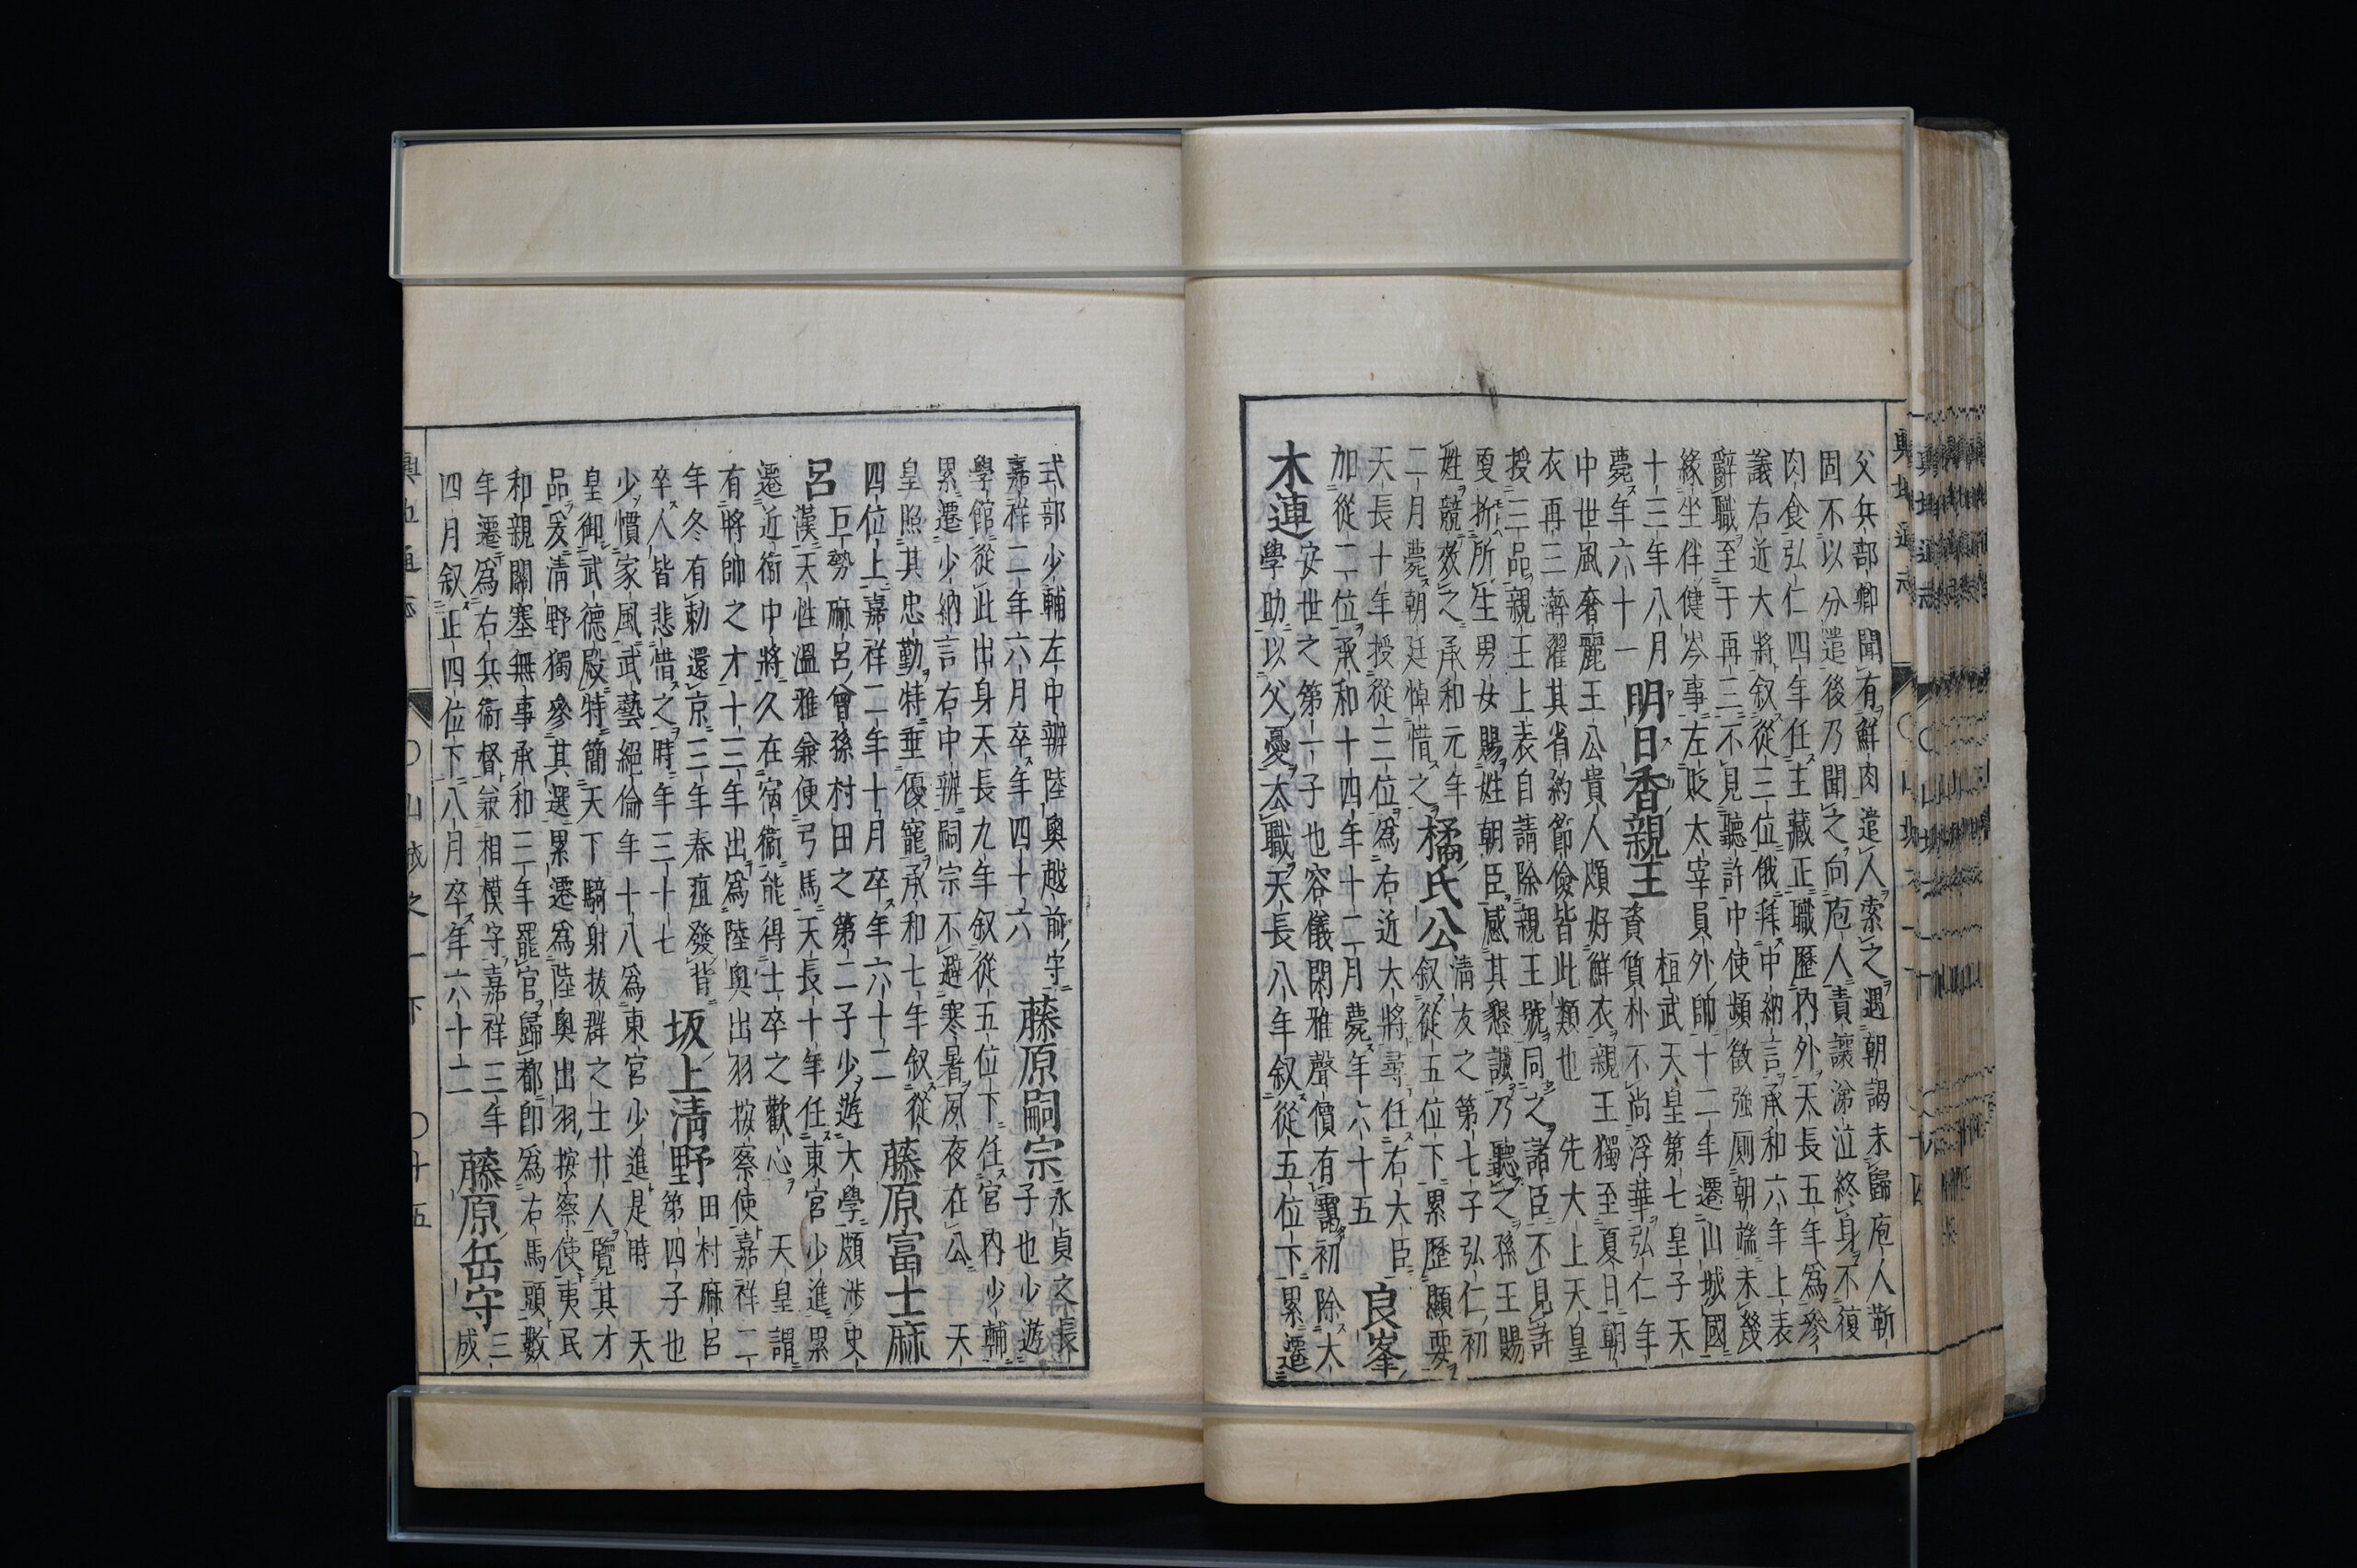 父兵部卿聞有鮮肉遣人索之遇朝謁未歸庖人靳
固不以分遣後乃聞之向庖人責讓涕泣終身不復
肉食弘仁四年任主藏正職歷內外天長五年為參
議右近大將叙從三位俄拜中納言承和六年上表
辭職至于再三不見聽許中使頻徵強厠朝端未幾
緣坐伴健岑事左貶太宰員外帥十二年遷山城國
十三年八月
薨年六十一
明日香親王
桓武天皇第七皇子天
資質朴不尚浮華弘仁年
中世風奢麗王公貴人頗好鮮衣親王獨至夏日朝
衣再三澣濯其省約節儉皆此類也 先大上天皇
授三品親王上表自請除親王號同之諸臣不見許
更折所生男女賜姓朝臣感其懇誠乃聽之孫王賜
姓競效之承和元年
二月薨朝廷悼惜之
橘氏公
清友之第七子弘仁初
叙從五位下累歷顯要
天長十年授從三位為右近大將尋任右大臣
加從二位承和十四年十二月薨年六十五
良峯
木連
安世之第一子也容儀閑雅聲價有譽初除太
學助以父憂去職天長八年叙從五位下累遷
式部少輔左中辨陸奥越前守
嘉祥二年六月卒年四十六
藤原嗣宗
永貞之長
子也少遊
學館從此出身天長九年叙從五位下任宮內少輔
累遷少納言右中辨嗣宗不避寒暑夙夜在公 天
皇照其忠勤特垂優寵承和七年叙從
四位上嘉祥二年十月卒年六十二
藤原富士麻
呂
巨勢麻呂曾孫村田之第二子少遊大學頗渉史
漢天性溫雅兼便弓馬天長十年任東宮少進累
遷近衞中將久在宿衞能得士卒之歡心 天皇謂
有將帥之才十三年出為陸奥出羽按察使嘉祥二
年冬有勅還京三年春疽發背
卒人皆悲惜之時年三十七
坂上清野
田村麻呂
第四子也
少慣家風武藝絕倫年十八為東宮少進是時 天
皇御武德殿特簡天下騎射拔群之士廿人覽其才
品爰清野獨參其選累遷為陸奥出羽按察使夷民
和親關塞無事承和三年罷官歸都即為右馬頭數
年遷為右兵衞督兼相模守嘉祥三年
四月叙正四位下八月卒年六十二
藤原岳守
三
成